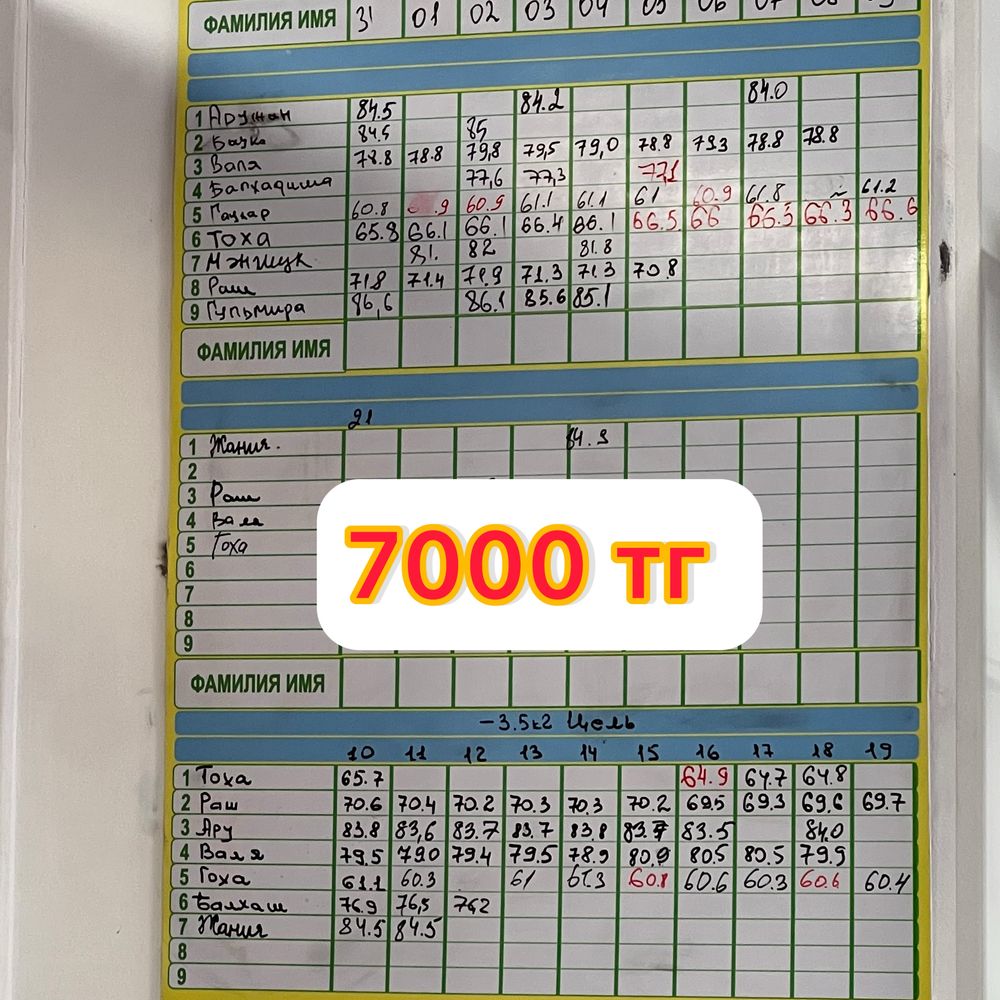 ФАМИЛИЯ ИМЯ 31 01 02 03 04 05 06 07
1 Аружан 84.5 84.2 84.0
2 Баука 84,5 85
3 Валя 78.8 78.8 79,8 79,5 79,0 78.8 79.3 78.8 78.8
4 77,6 77,3 77,1
5 Гаухар 60.8 60.9 61.1 61.1 61 60.9 61.8 61.2
6 Тоха 65.8 66.1 66.1 66.4 66.1 66.5 66 66.3 66.3 66.6
7 81. 82 81.8
8 Раш 71.8 71.4 71.9 71.3 71.3 70.8
9 Гульмира 86,6 86.1 85.6 85.1
ФАМИЛИЯ ИМЯ
21
1 Жания. 84.9
2
3 Раш
4 Валя
5 Гоха
6
7
8
9
7000 тг
ФАМИЛИЯ ИМЯ
-3.5кг Цель
10 11 12 13 14 15 16 17 18 19
1 Тоха 65.7 64.9 64.7 64.8
2 Раш 70.6 70.4 70.2 70.3 70.3 70.2 69.5 69.3 69.6 69.7
3 Ару 83.8 83,6 83.7 83.7 83.8 83.7 83.5 84.0
4 Валя 79,5 79.0 79.4 79.5 78.9 80,9 80.5 80.5 79.9
5 Гоха 61.1 60.3 61 61.3 60.8 60.6 60.3 60.6 60.4
6 Балхаш 76.9 76,5 76,2
7 Жания 84.5 84.5
8
9